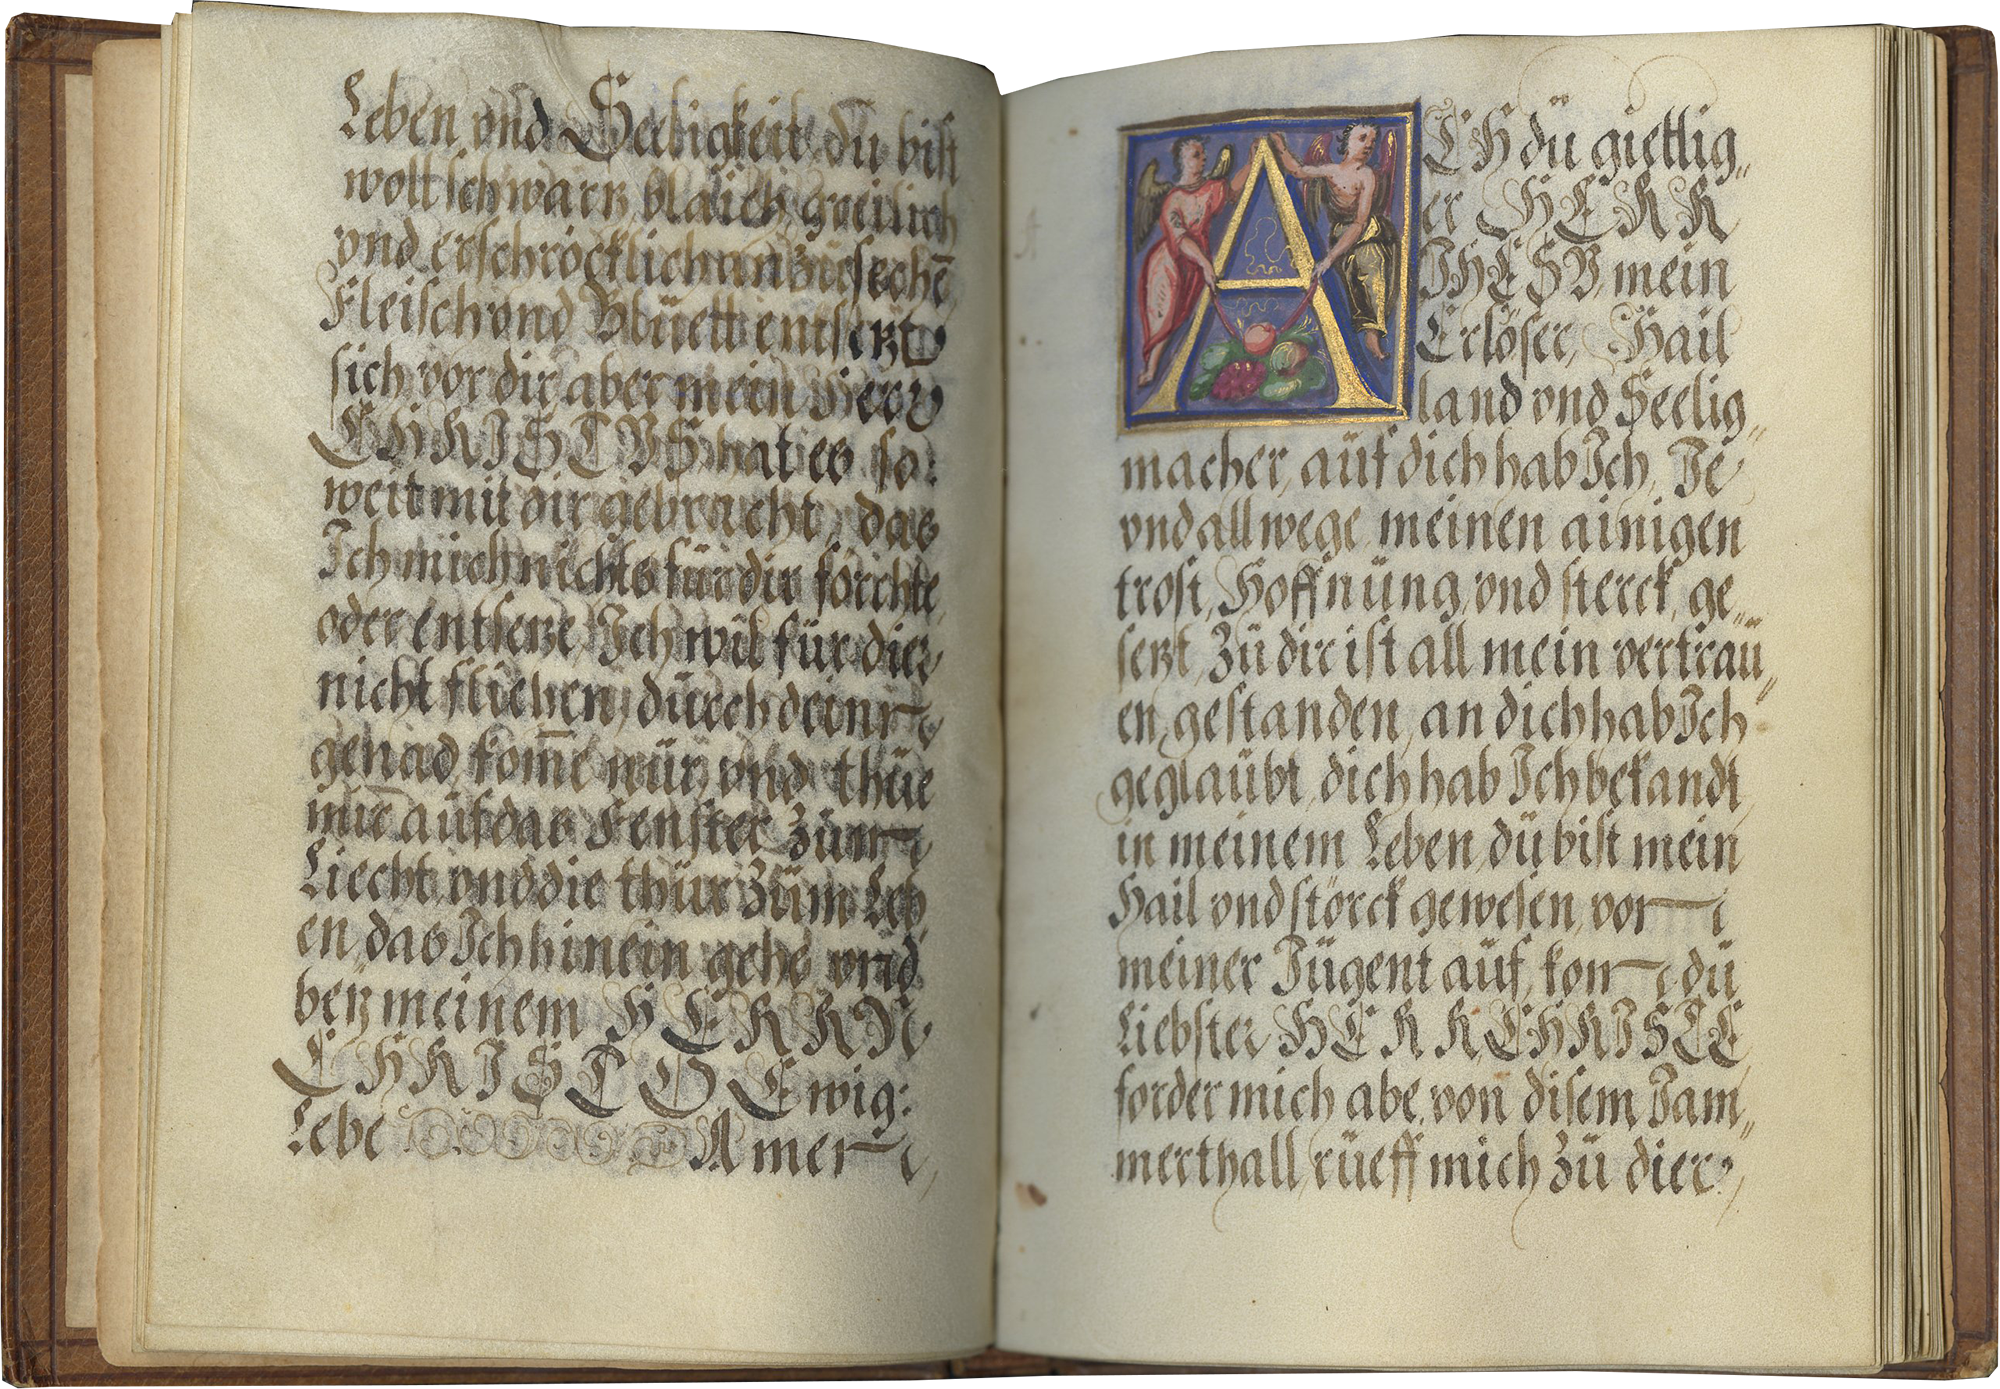 Leben vnd Seeligkeit, du bist
woll schwartz, blaich, greilich
vnd erschröcklich an Zu sechē
Fleisch vnd Blüett entsetzt
sich vor dir, aber mein Herr
CHRISTVS hat es so:
weit mit dir gebracht, das
Ich mich nichts für dir förchte
oder entsetze, Ich wil für dier
nicht fliehen, dürch dein
genad, kom̄e nür, vnd thüe
mir aüf das Fenster Züm
Liecht, vnd die thür Züm Leb
en, das Ich hinein gehe vnd
bey meinem HERRN
CHRISTO Ewig:
Lebe Amen
ACH dü giettig„
er HERR
IHESV, mein
Erlöser, Hail
land vnd Seelig„
macher, aüf dich hab Ich, Je
vnd allwege, meinen ainigen
trost, Hoffnüng, vnd sterck, ge„
setzt, Zü dir ist all mein vertraü„
en, gestanden, an dich hab Ich
geglaübt, dich hab Ich bekandt,
in meinem Leben, dü bist mein
Hail vnd störck gewesen, von
meiner Jügent aüf, kom dü
Liebster HERR CHRISTE,
forder mich abe, von disem Jam„
merthall, rüeff mich Zü dier,